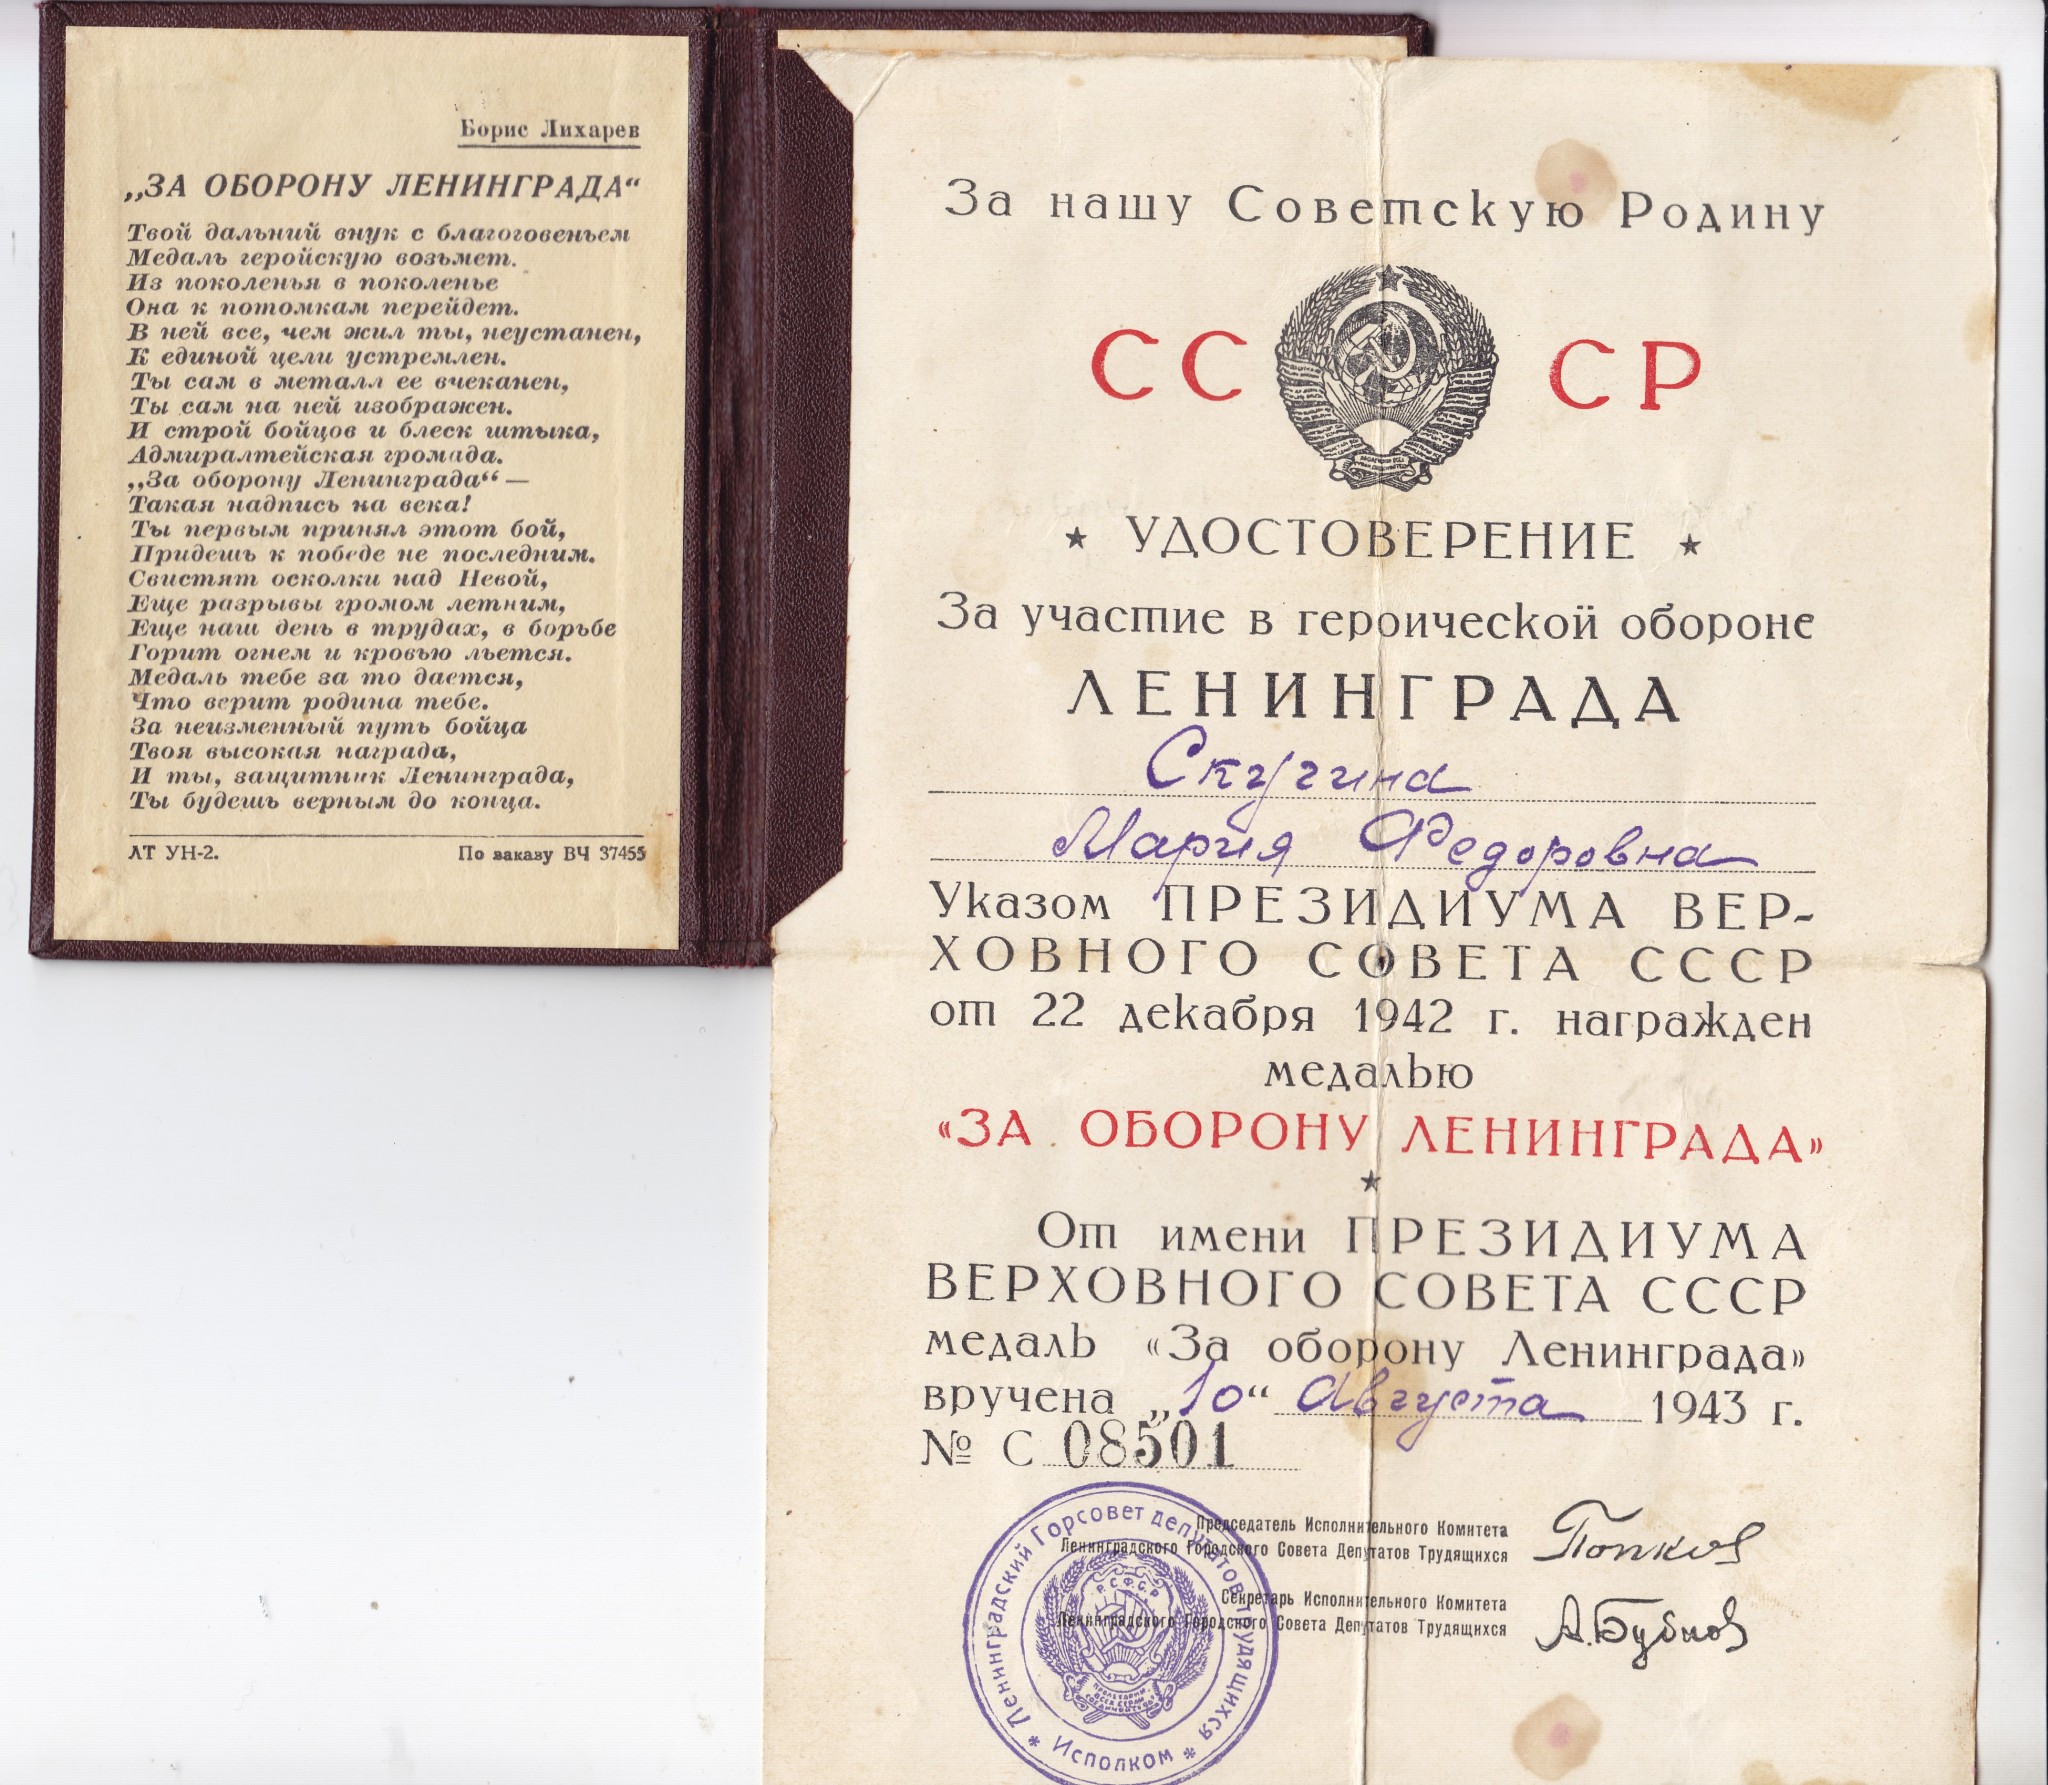 Борис Лихарев
„ЗА ОБОРОНУ ЛЕНИНГРАДА“
Твой дальний внук с благоговеньем
Медаль геройскую возьмет.
Из поколенья в поколенье
Она к потомкам перейдет.
В ней все, чем жил ты, неустанен,
К единой цели устремлен.
Ты сам в металл ее вчеканен,
Ты сам на ней изображен.
И строй бойцов и блеск штыка,
Адмиралтейская громада.
„За оборону Ленинграда“ —
Такая надпись на века!
Ты первым принял этот бой,
Придешь к победе не последним.
Свистят осколки над Невой,
Еще разрывы громом летним,
Еще наш день в трудах, в борьбе
Горит огнем и кровью льется.
Медаль тебе за то дается,
Что верит родина тебе.
За неизменный путь бойца
Твоя высокая награда,
И ты, защитник Ленинграда,
Ты будешь верным до конца.
ЛТ УН-2. По заказу ВЧ 37455
За нашу Советскую Родину
СС СР
★ УДОСТОВЕРЕНИЕ ★
За участие в героической обороне
ЛЕНИНГРАДА
Скугина
Мария Федоровна
Указом ПРЕЗИДИУМА ВЕР-
ХОВНОГО СОВЕТА СССР
от 22 декабря 1942 г. награжден
медалью
«ЗА ОБОРОНУ ЛЕНИНГРАДА»
★
От имени ПРЕЗИДИУМА
ВЕРХОВНОГО СОВЕТА СССР
медаль «За оборону Ленинграда»
вручена „10“ Августа 1943 г.
№ С 08501
Председатель Исполнительного Комитета
Ленинградского Городского Совета Депутатов Трудящихся
Попков
Секретарь Исполнительного Комитета
Ленинградского Городского Совета Депутатов Трудящихся
А.Бубнов
* Ленинградский Горсовет депутатов трудящихся * Исполком
Р.С.Ф.С.Р